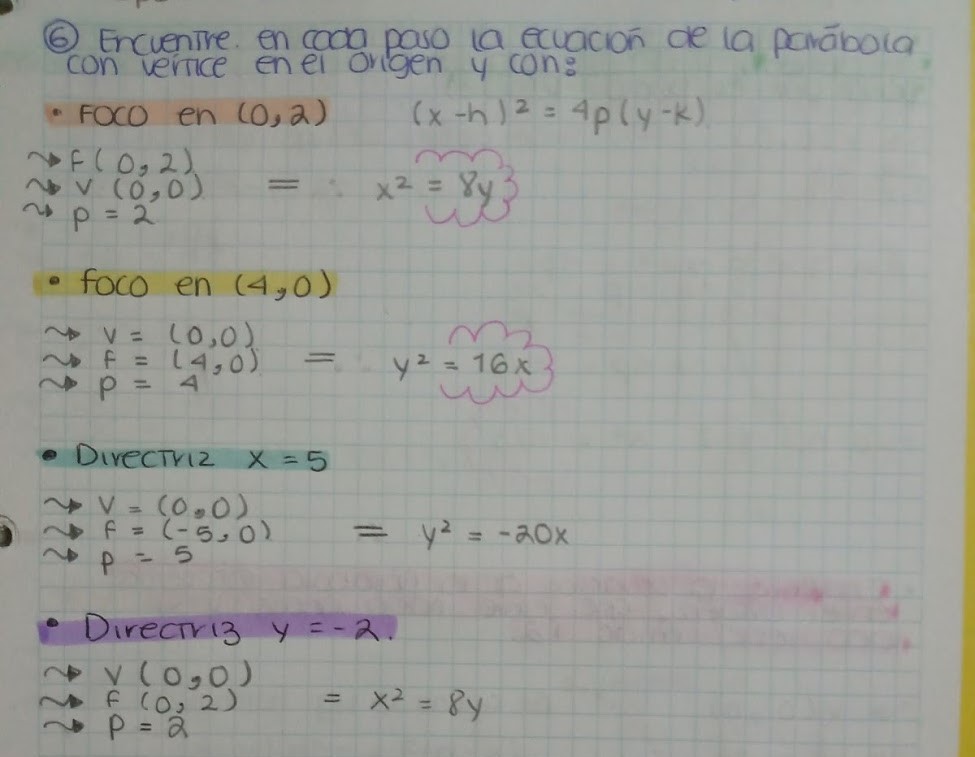 ⑥ Encuentre en cada paso la ecuación de la parábola
con vértice en el origen y con:
• FOCO en (0,2) (x-h)² = 4p(y-k)
⤳ F(0,2)
⤳ V (0,0) = x² = 8y
⤳ P = 2
• foco en (4,0)
⤳ V = (0,0)
⤳ F = (4,0) = y² = 16x
⤳ P = 4
• Directriz x = 5
⤳ V = (0,0)
⤳ F = (-5,0) = y² = -20x
⤳ P = 5
• Directriz y = -2.
⤳ V (0,0)
⤳ F (0,2) = x² = 8y
⤳ P = 2